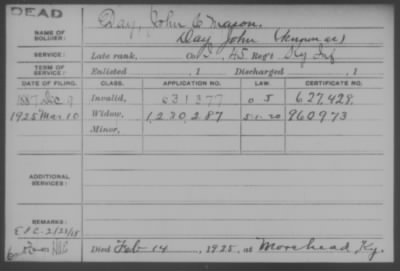 DEAD
Day, John C Mason.
NAME OF SOLDIER: Day John (known as)
SERVICE: Late rank, Co. D, 45 Reg't Ky Inf
TERM OF SERVICE: Enlisted , 1 Discharged , 1
DATE OF FILING. CLASS. APPLICATION NO. LAW. CERTIFICATE NO.
1887 Dec 9 Invalid, 631377 627,429.
1925 Mar 10 Widow, 1,230,287 5-1-20 960973
Minor,
ADDITIONAL SERVICES:
REMARKS:
Died Feb 14, 1925, at Morehead, Ky.